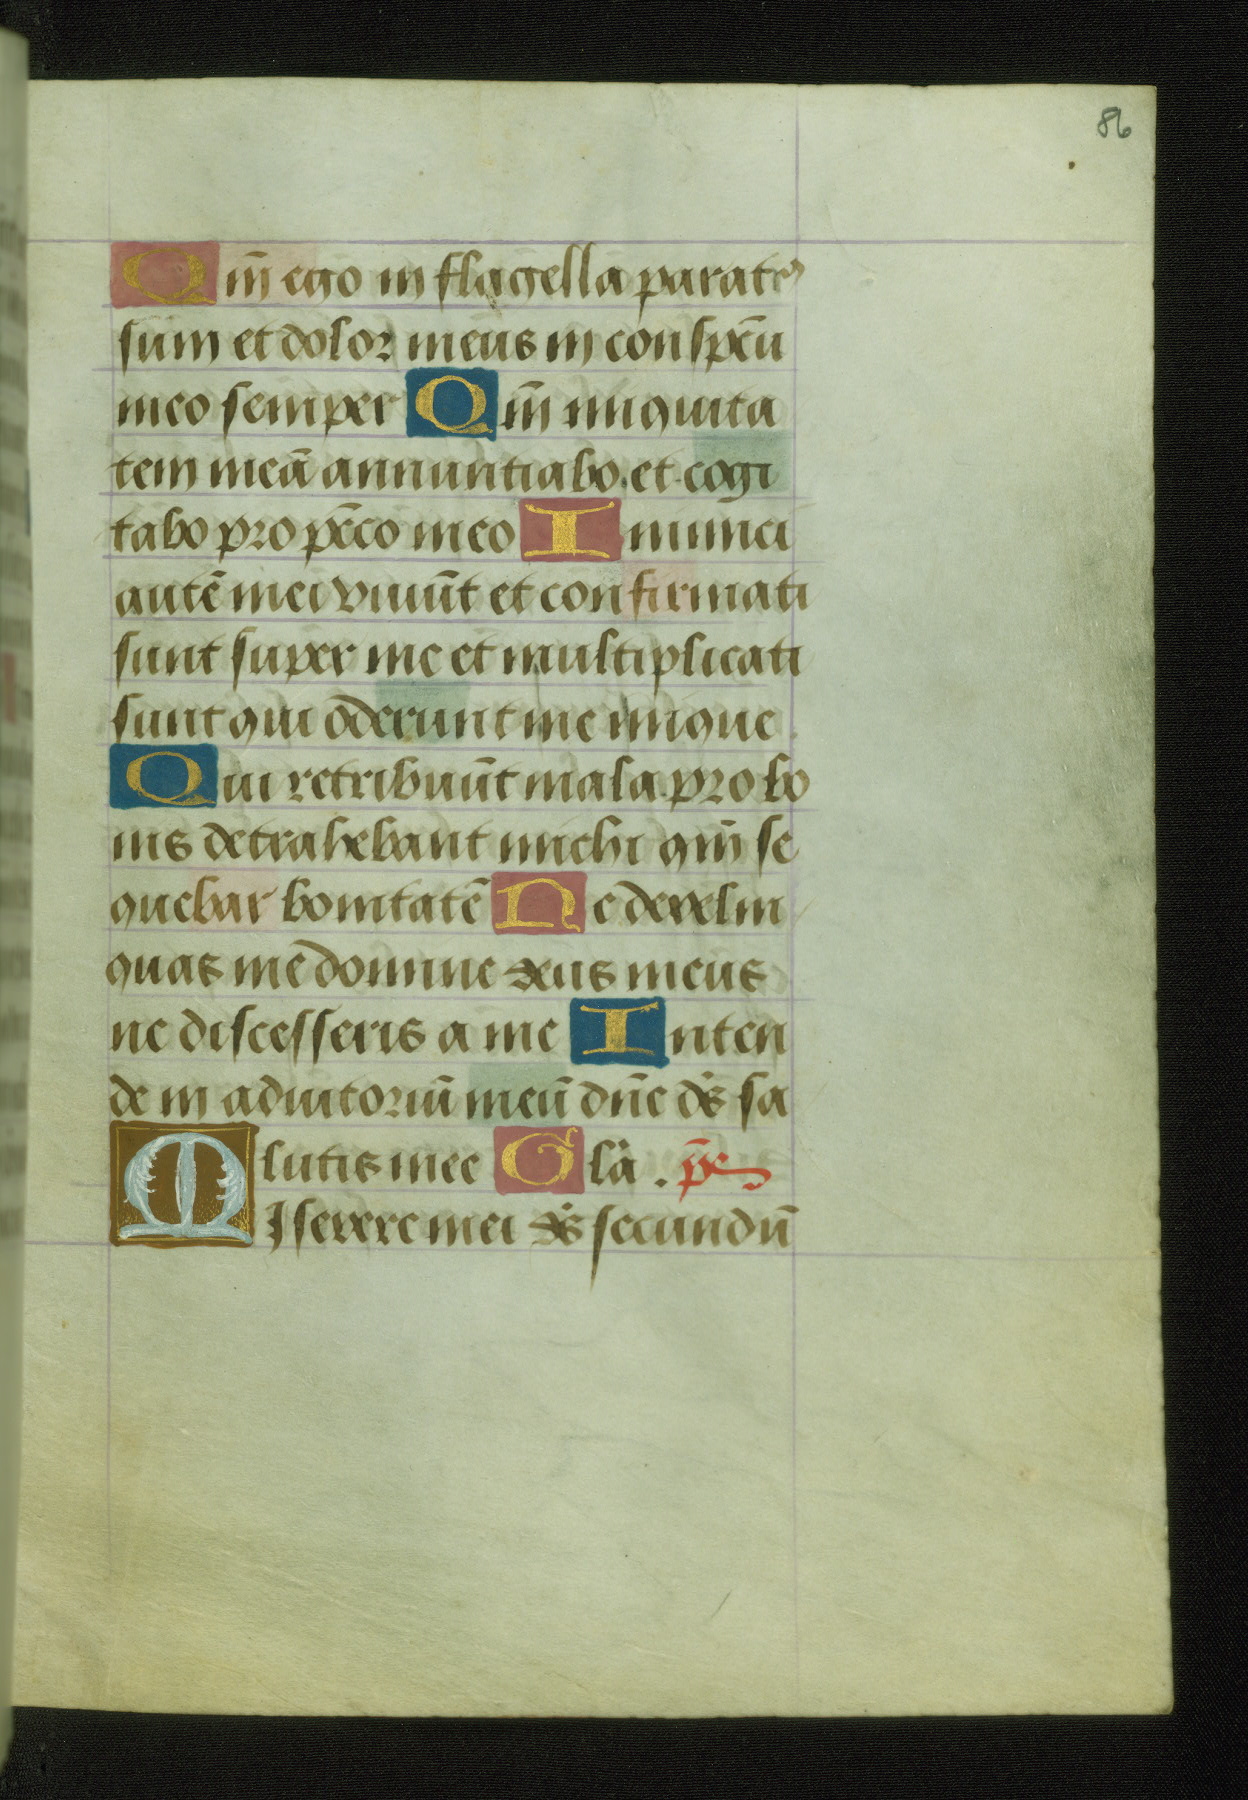 86
Qm̄ ego in flagella paratꝰ
sum et dolor meus in conspc̄u
meo semper Qm̄ iniquita
tem meā annuntiabo et cogi
tabo pro pc̄co meo Inimici
autē mei viuūt et confirmati
sunt super me et multiplicati
sunt qui oderunt me inique
Qui retribuūt mala pro bo
nis detrahebant michi qm̄ se
quebar bonitatē Ne derelin
quas me domine deus meus
ne discesseris a me Inten
de in adiutoriū meū dn̄e ds̄ sa
lutis mee Glā . ps̄
MIserere mei ds̄ secundū